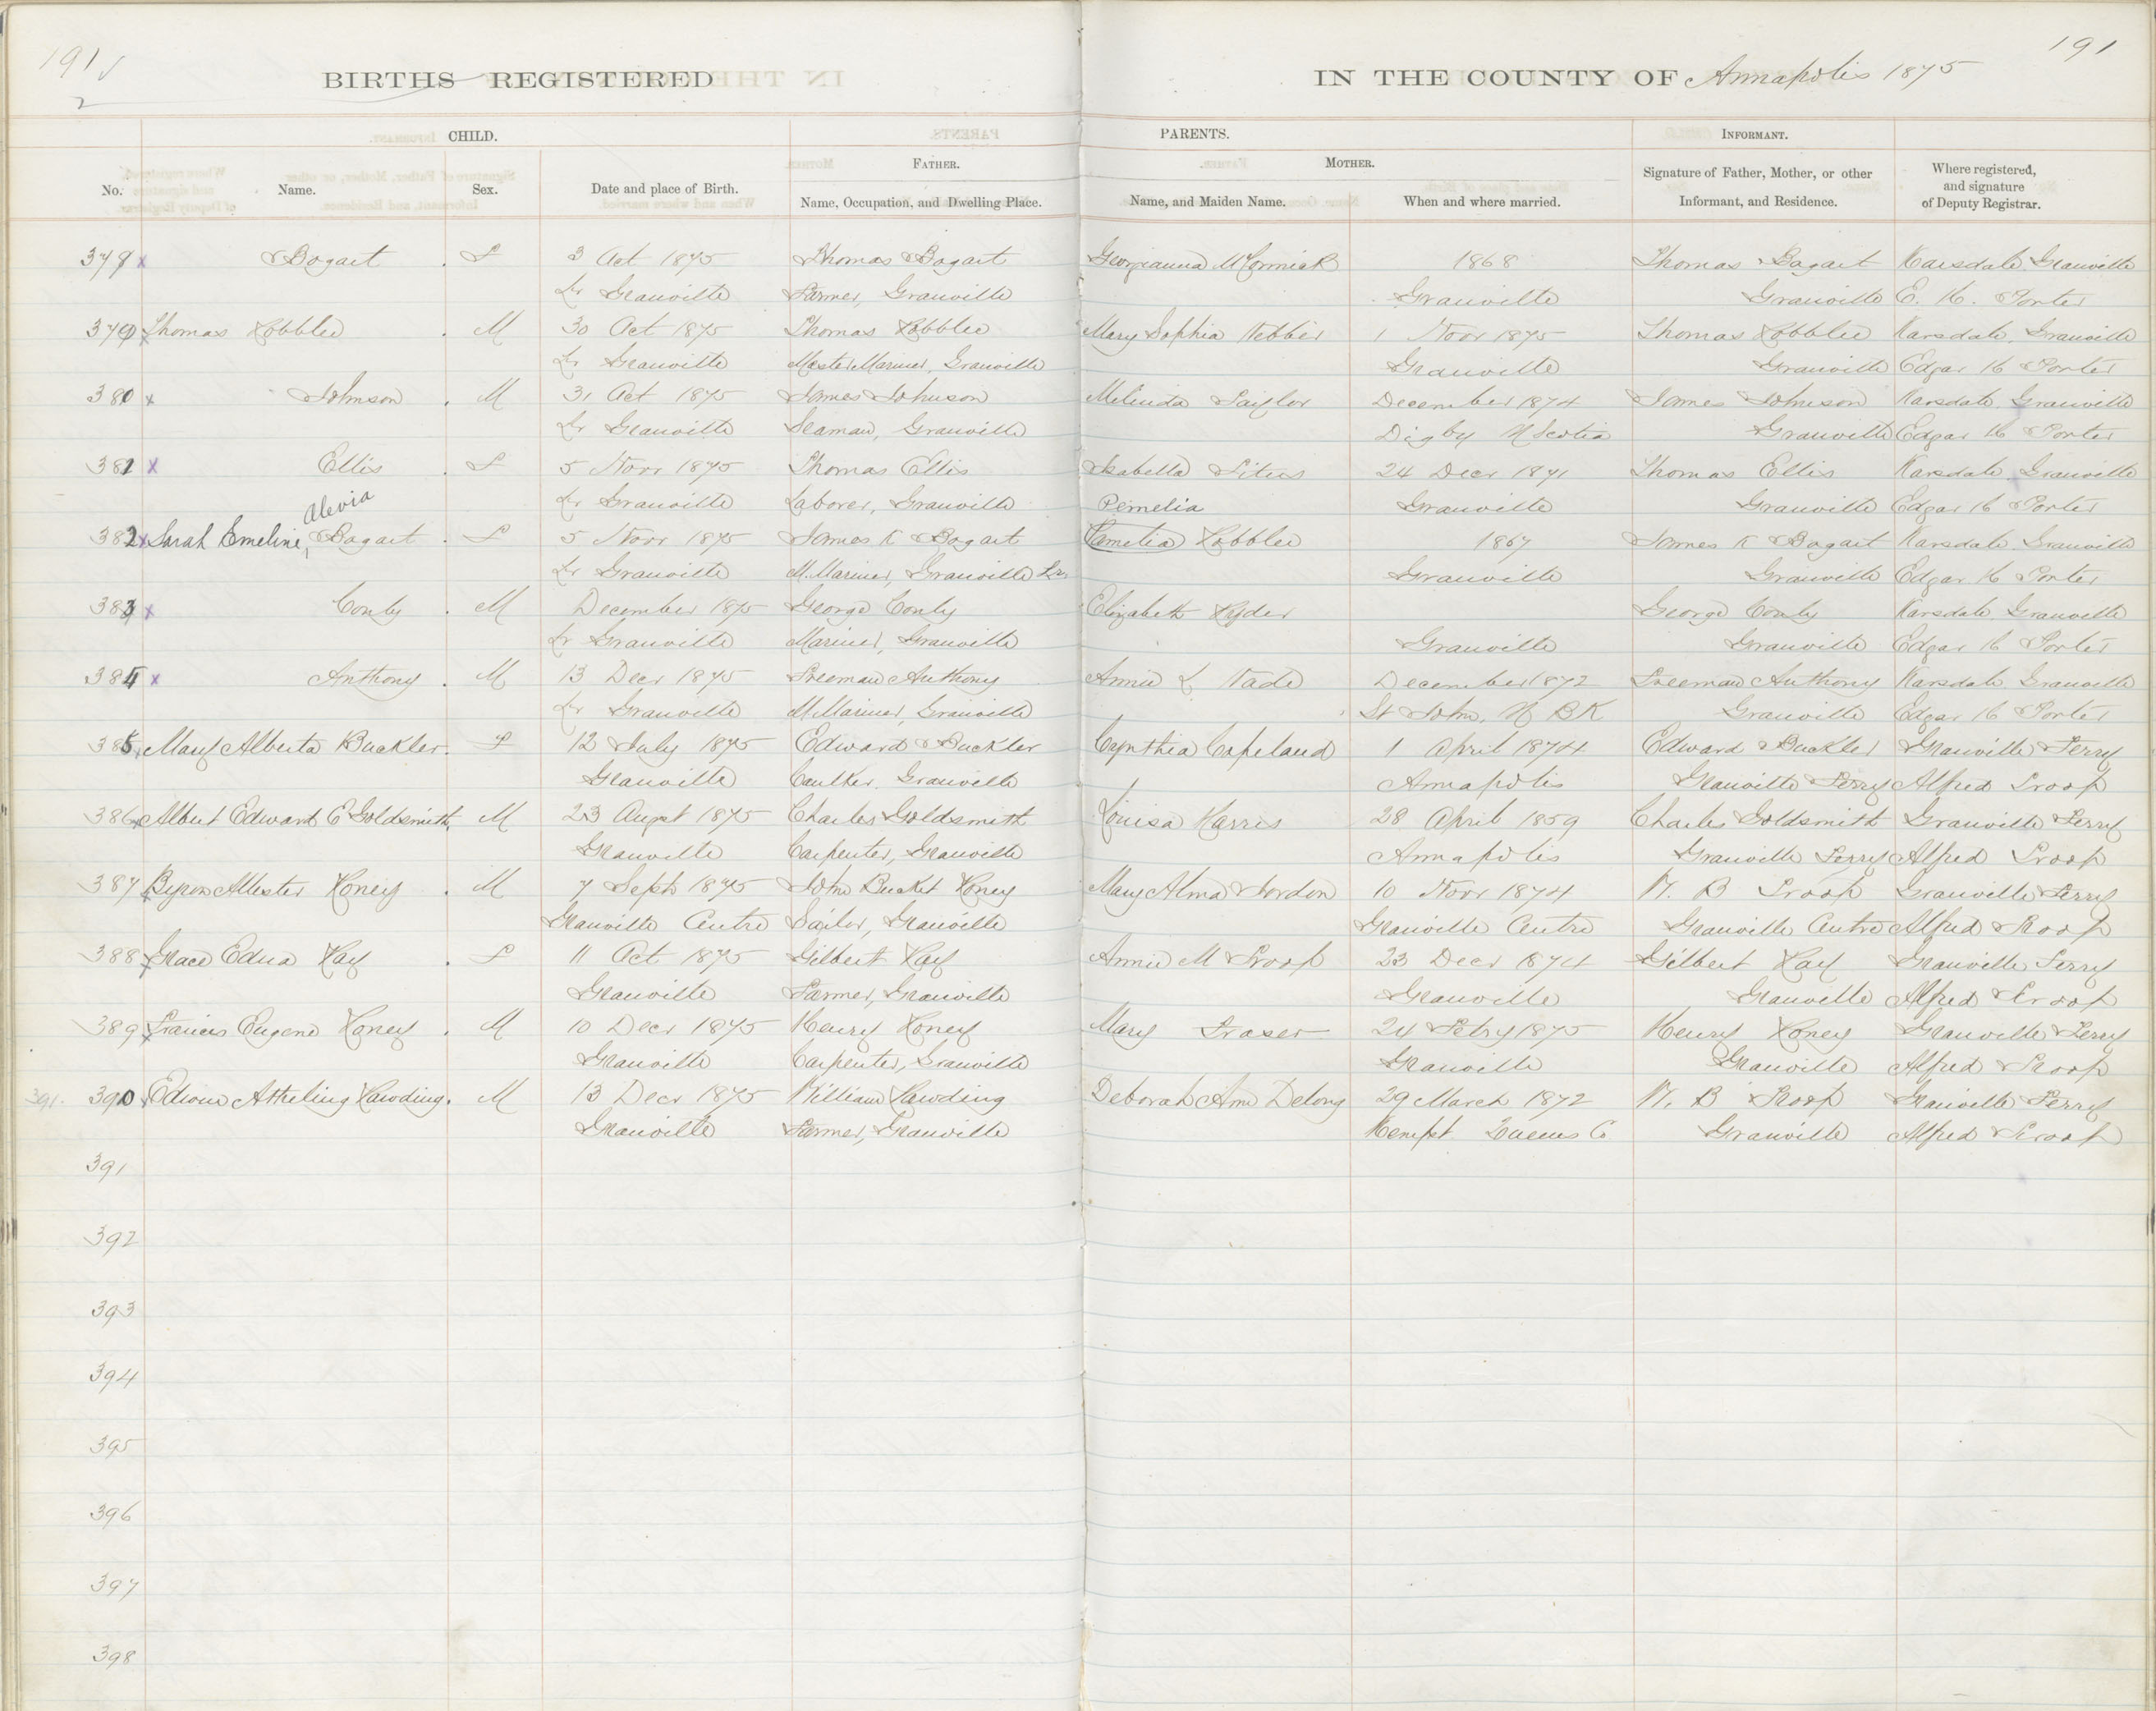 191
191
2
BIRTHS REGISTERED IN THE COUNTY OF Annapolis 1875
CHILD. PARENTS. INFORMANT.
FATHER. MOTHER.
No. Name. Sex. Date and place of Birth. Name, Occupation, and Dwelling Place. Name, and Maiden Name. When and where married. Signature of Father, Mother, or other Informant, and Residence. Where registered, and signature of Deputy Registrar.
378 x Bogart . F 3 Oct 1875 Thomas Bogart Georgianna McCormick 1868 Thomas Bogart Karsdale Granville
Lr Granville Farmer, Granville Granville Granville E. H. Porter
379 x Thomas Robblee . M 30 Oct 1875 Thomas Robblee Mary Sophia 1 Novr 1875 Thomas Robblee Karsdale, Granville
Lr Granville Master Mariner, Granville Granville Granville Edgar H Porter
380 x Johnson . M 31 Oct 1875 James Johnson Melinda Sailor December 1874 James Johnson Karsdale, Granville
Lr Granville Seaman, Granville Digby N Scotia Granville Edgar H Porter
381 x Ellis . F 5 Novr 1875 Thomas Ellis Isabella Titus 24 Decr 1871 Thomas Ellis Karsdale, Granville
Alevia Lr Granville Laborer, Granville Pemelia Granville Granville Edgar H Porter
382 x Sarah Emeline, Bogart . F 5 Novr 1875 James K Bogart Camelia Robblee 1867 James K Bogart Karsdale Granville
Lr Granville M. Mariner, Granville Lr Granville Granville Edgar H Porter
383 x Conly . M December 1875 George Conly Elizabeth Ryder George Conly Karsdale, Granville
Lr Granville Mariner, Granville Granville Granville Edgar H Porter
384 x Anthony . M 13 Decr 1875 Freeman Anthony Annie L Wade December 1872 Freeman Anthony Karsdale, Granville
Lr Granville M. Mariner, Granville St John, N BK Granville Edgar H Porter
385 x Mary Alberta Buckler . F 12 July 1875 Edward Buckler Cynthia Copeland 1 April 1874 Edward Buckler Granville Ferry
Granville Caulker, Granville Annapolis Granville Ferry Alfred Troop
386 x Albert Edward E Goldsmith, M 23 Augst 1875 Charles Goldsmith Louisa Harris 28 April 1859 Charles Goldsmith Granville Ferry
Granville Carpenter, Granville Annapolis Granville Ferry Alfred Troop
387 x Byron Allester Roney . M 7 Sepb 1875 John Bucket Roney Mary Alma Gordon 10 Novr 1874 W. B Troop Granville Ferry
Granville Centre Sailor, Granville Granville Centre Granville Centre Alfred Troop
388 x Grace Edna Ray . F 11 Oct 1875 Gilbert Ray Annie M Troop 23 Decr 1874 Gilbert Ray Granville Ferry
Granville Farmer, Granville Granville Granville Alfred Troop
389 x Francis Eugene Roney . M 10 Decr 1875 Henry Roney Mary Fraser 24 Febry 1875 Henry Roney Granville Ferry
Granville Carpenter, Granville Granville Granville Alfred Troop
391. 390 x Edwin Atheling Hawding . M 13 Decr 1875 William Hawding Deborah Ann Delong 29 March 1872 W. B Troop Granville Ferry
Granville Farmer, Granville Kempt Queens Co Granville Alfred Troop
391
392
393
394
395
396
397
398